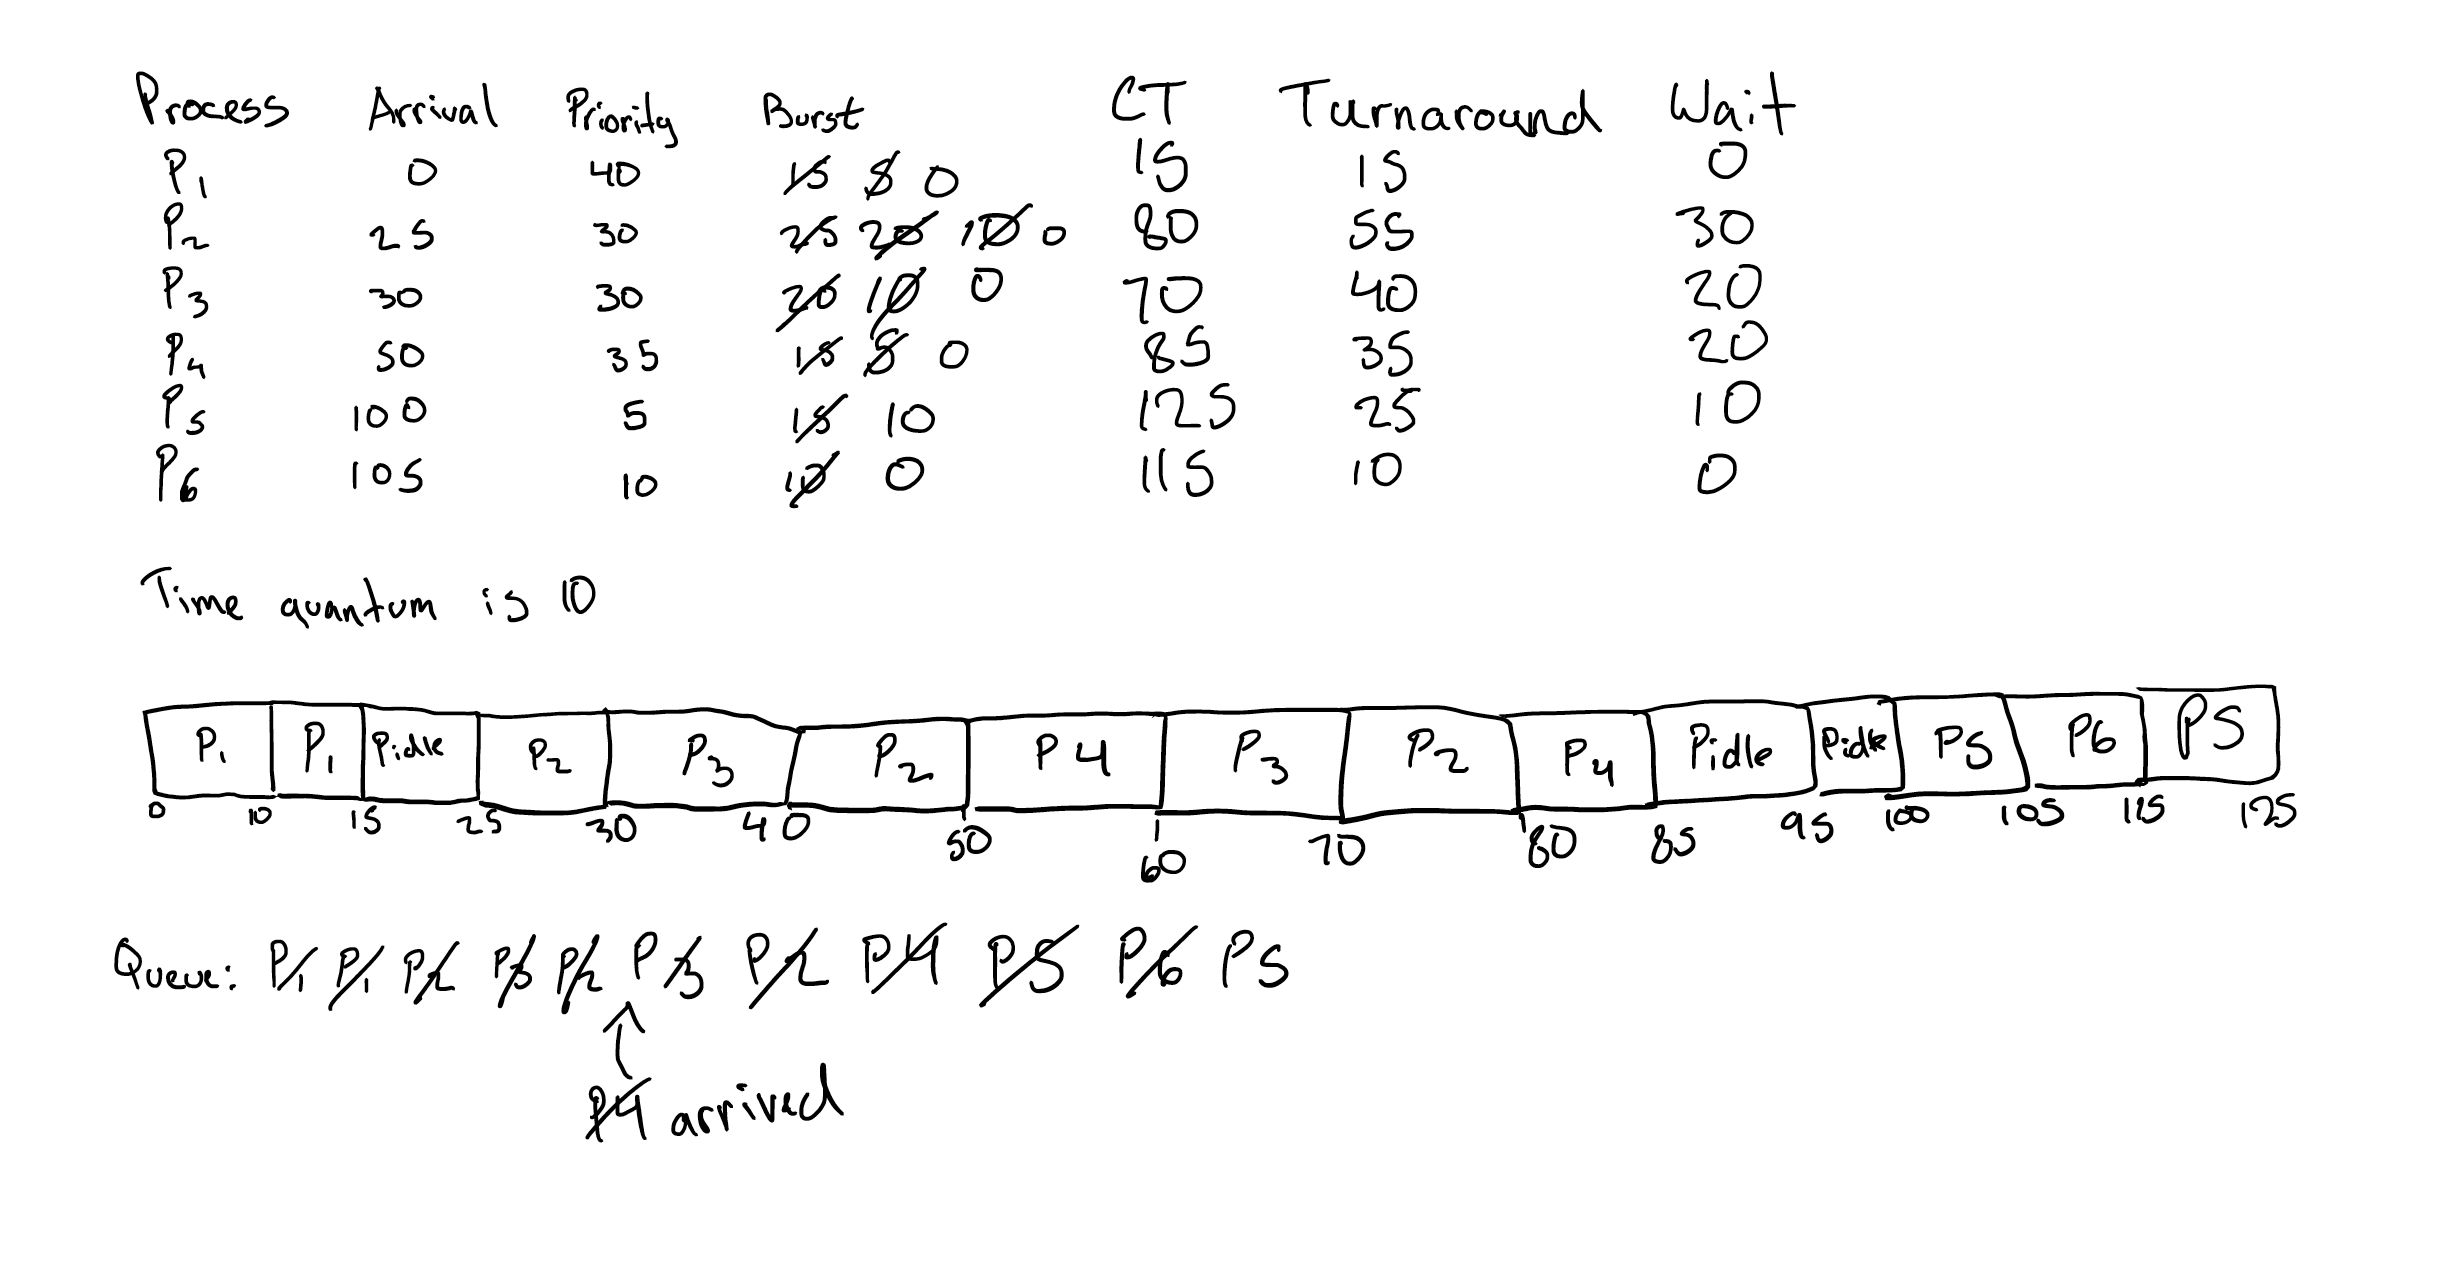 Process Arrival Priority Burst CT Turnaround Wait
P1 0 40 15 5 0 15 15 0
P2 25 30 25 20 10 0 80 55 30
P3 30 30 20 10 0 70 40 20
P4 50 35 15 5 0 85 35 20
P5 100 5 15 10 125 25 10
P6 105 10 10 0 115 10 0
Time quantum is 10
P1 P1 Pidle P2 P3 P2 P4 P3 P2 P4 Pidle Pidle P5 P6 P5
0 10 15 25 30 40 50 60 70 80 85 95 100 105 115 125
Queue: P1 P1 P2 P3 P2 P3 P2 P4 P5 P6 P5
P4 arrived